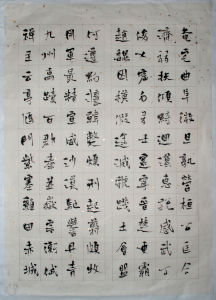 奄宅曲阜微旦孰營桓公匡合
濟弱扶傾綺迴漢惠說感武丁
俊乂密勿多士寔寧晉楚更霸
趙魏困橫假途滅虢踐土會盟
何遵約法韓弊煩刑起翦頗牧
用軍最精宣威沙漠馳譽丹青
九州禹跡百郡秦并嶽宗泰岱
禪主云亭雁門紫塞雞田赤城